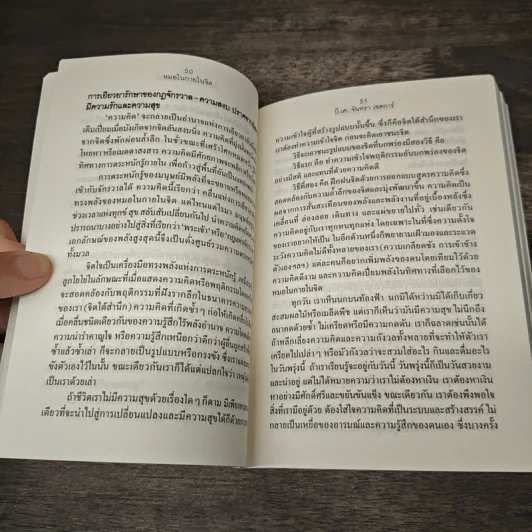 50
หมอในกายในจิต
การเยียวยารักษาของกฎจักรวาล – ความสงบ
มีความรักและความสุข
'ความคิด' จะกลายเป็นอำนาจแห่งการเยียวยา
เต็มเปี่ยมเมื่อมันเกิดจากจิตอันสงบนิ่ง ความคิดที่
เกิดจากจิตซึ่งพักผ่อนล้ำลึก ในชั่วขณะที่
ไหลหาหรือเมตตาสงสาร ความคิดมีศักยภาพจะ
ทิศทางการตระหนักรู้ภายใน เพื่อก้าวสู่พื้นที่อันเป็น
การตระหนักรู้ของมนุษย์มีพลังที่จะ
เข้ากับจักรวาลได้ ความคิดนี้เรียกว่า คลื่นแห่งการ
ทรงพลังของหมอในกายในจิต แต่ไหนแต่ไรมา
ช่วงเวลาแห่งทุกข์ สุข สลับสับเปลี่ยนกันไป นำความ
ปรารถนาบางอย่างไปสู่สิ่งที่เรียกว่า 'พระเจ้า' หรือ
เอกลักษณ์ของพลังสูงสุดนี้จึงเป็นดั่งศูนย์รวมความ
ทั้งมวล
จิตใจเป็นเครื่องมือทรงพลังแห่งการตระหนักรู้
ลูกโยโยในลักษณะที่เมื่อแสดงความคิดหรือพฤติกรรมใด
จะสอดคล้องกับพฤติกรรมที่ฝังรากลึกในธนาคารความ
ของเรา (จิตใต้สำนึก) ความคิดที่เกิดซ้ำๆ ก่อให้เกิด
เมื่อคลื่นชนิดเดียวกันของความรู้สึกไร้พลังอำนาจ
ความน่ารำคาญใจ หรือความรู้สึกเหนือกว่าดีกว่าผู้อื่น
ซ้ำแล้วซ้ำเล่า ก็จะกลายเป็นรูปแบบหรือกรงขัง ซึ่งเรา
ขังตัวเองไว้ในนั้น ขณะเดียวกันเราก็ได้แต่แปลกใจว่า
เป็นเราด้วยเล่า
ถ้าชีวิตเราไม่มีความสุขด้วยเรื่องใดๆ ก็ตาม
เดียวที่จะนำไปสู่การเปลี่ยนแปลงและมีความสุขได้ก็ด้วย
51
บี.เค. จันทรา เชคการ์
ความเข้าใจผู้ที่สร้างรูปแบบนั้นขึ้น ซึ่งก็คือจิตใต้สำนึกของเรา
เราต้องทำความเข้าใจจิต ก่อนจะคิดเอาชนะจิต
วิธีจะเอาชนะรูปแบบของจิตที่บกพร่องมีสองวิธี คือ
วิธีแรก คือ ทำความเข้าใจพฤติกรรมอันบกพร่องของจิต
อย่างมีสติ และแทนที่ด้วยความคิดดี
วิธีที่สอง คือ ฝึกฝนจิตด้วยการออกแบบสูตรความคิดซึ่ง
สอดคล้องกับความล้ำลึกของจิตและมุ่งพัฒนาขึ้น ความคิดเป็น
ผลจากการสั่นสะเทือนของพลังและพลังงานที่อยู่เบื้องหลังซึ่ง
เคลื่อนที่ ล่องลอย เดินทาง และแผ่ขยายไปทั่ว เช่นเดียวกัน
ความคิดอยู่กับเราทุกหนทุกแห่ง โดยเฉพาะในที่ซึ่งความตั้งใจ
ของเราอยากให้เป็น ในอีกด้านหนึ่งก็พยายามเฝ้ามองและแวด
ระวังความคิดไม่ดีทั้งหลายของเรา (ความเกลียดชัง การเข้าข้าง
ตัวเองฯลฯ) แต่ละคนก็อยากเพิ่มพลังของตนโดยเทียบไว้ด้วย
ความคิดดีงาม และความคิดเปี่ยมพลังในทิศทางที่เลือกไว้ของ
หมอในกายในจิต
ทุกวัน เราเห็นนกบนท้องฟ้า นกมิได้หว่านมิได้เก็บเกี่ยว
สะสมผลไม้หรือเมล็ดพืช แต่เราก็เห็นว่ามันมีความสุข ไม่นึกถึง
อนาคตด้วยซ้ำ ไม่เครียดหรือมีความกดดัน เราก็ฉลาดเช่นนั้นได้
ถ้าหลีกเลี่ยงความคิดและความกังวลทั้งหลายที่จะทำให้ตัวเรา
เครียดไปเปล่าๆ หรือมัวกังวลว่าจะสวมใส่อะไร กินและดื่มอะไร
ในวันพรุ่งนี้ ถ้าเราเรียนรู้จะอยู่กับวันนี้ วันพรุ่งนี้ก็เป็นวันสวยงาม
และน่าอยู่ แต่ไม่ได้หมายความว่าเราไม่ต้องหาเงิน เราต้องหาเงิน
หาอย่างมีศักดิ์ศรีและขยันขันแข็ง ขณะเดียวกัน เราต้องพึงพอใจ
สิ่งที่เรามีอยู่ด้วย ต้องใส่ใจความคิดที่เป็นระบบและสร้างสรรค์ ไม่
กลายเป็นเหยื่อของอารมณ์และความรู้สึกของตนเอง ซึ่งบางครั้ง